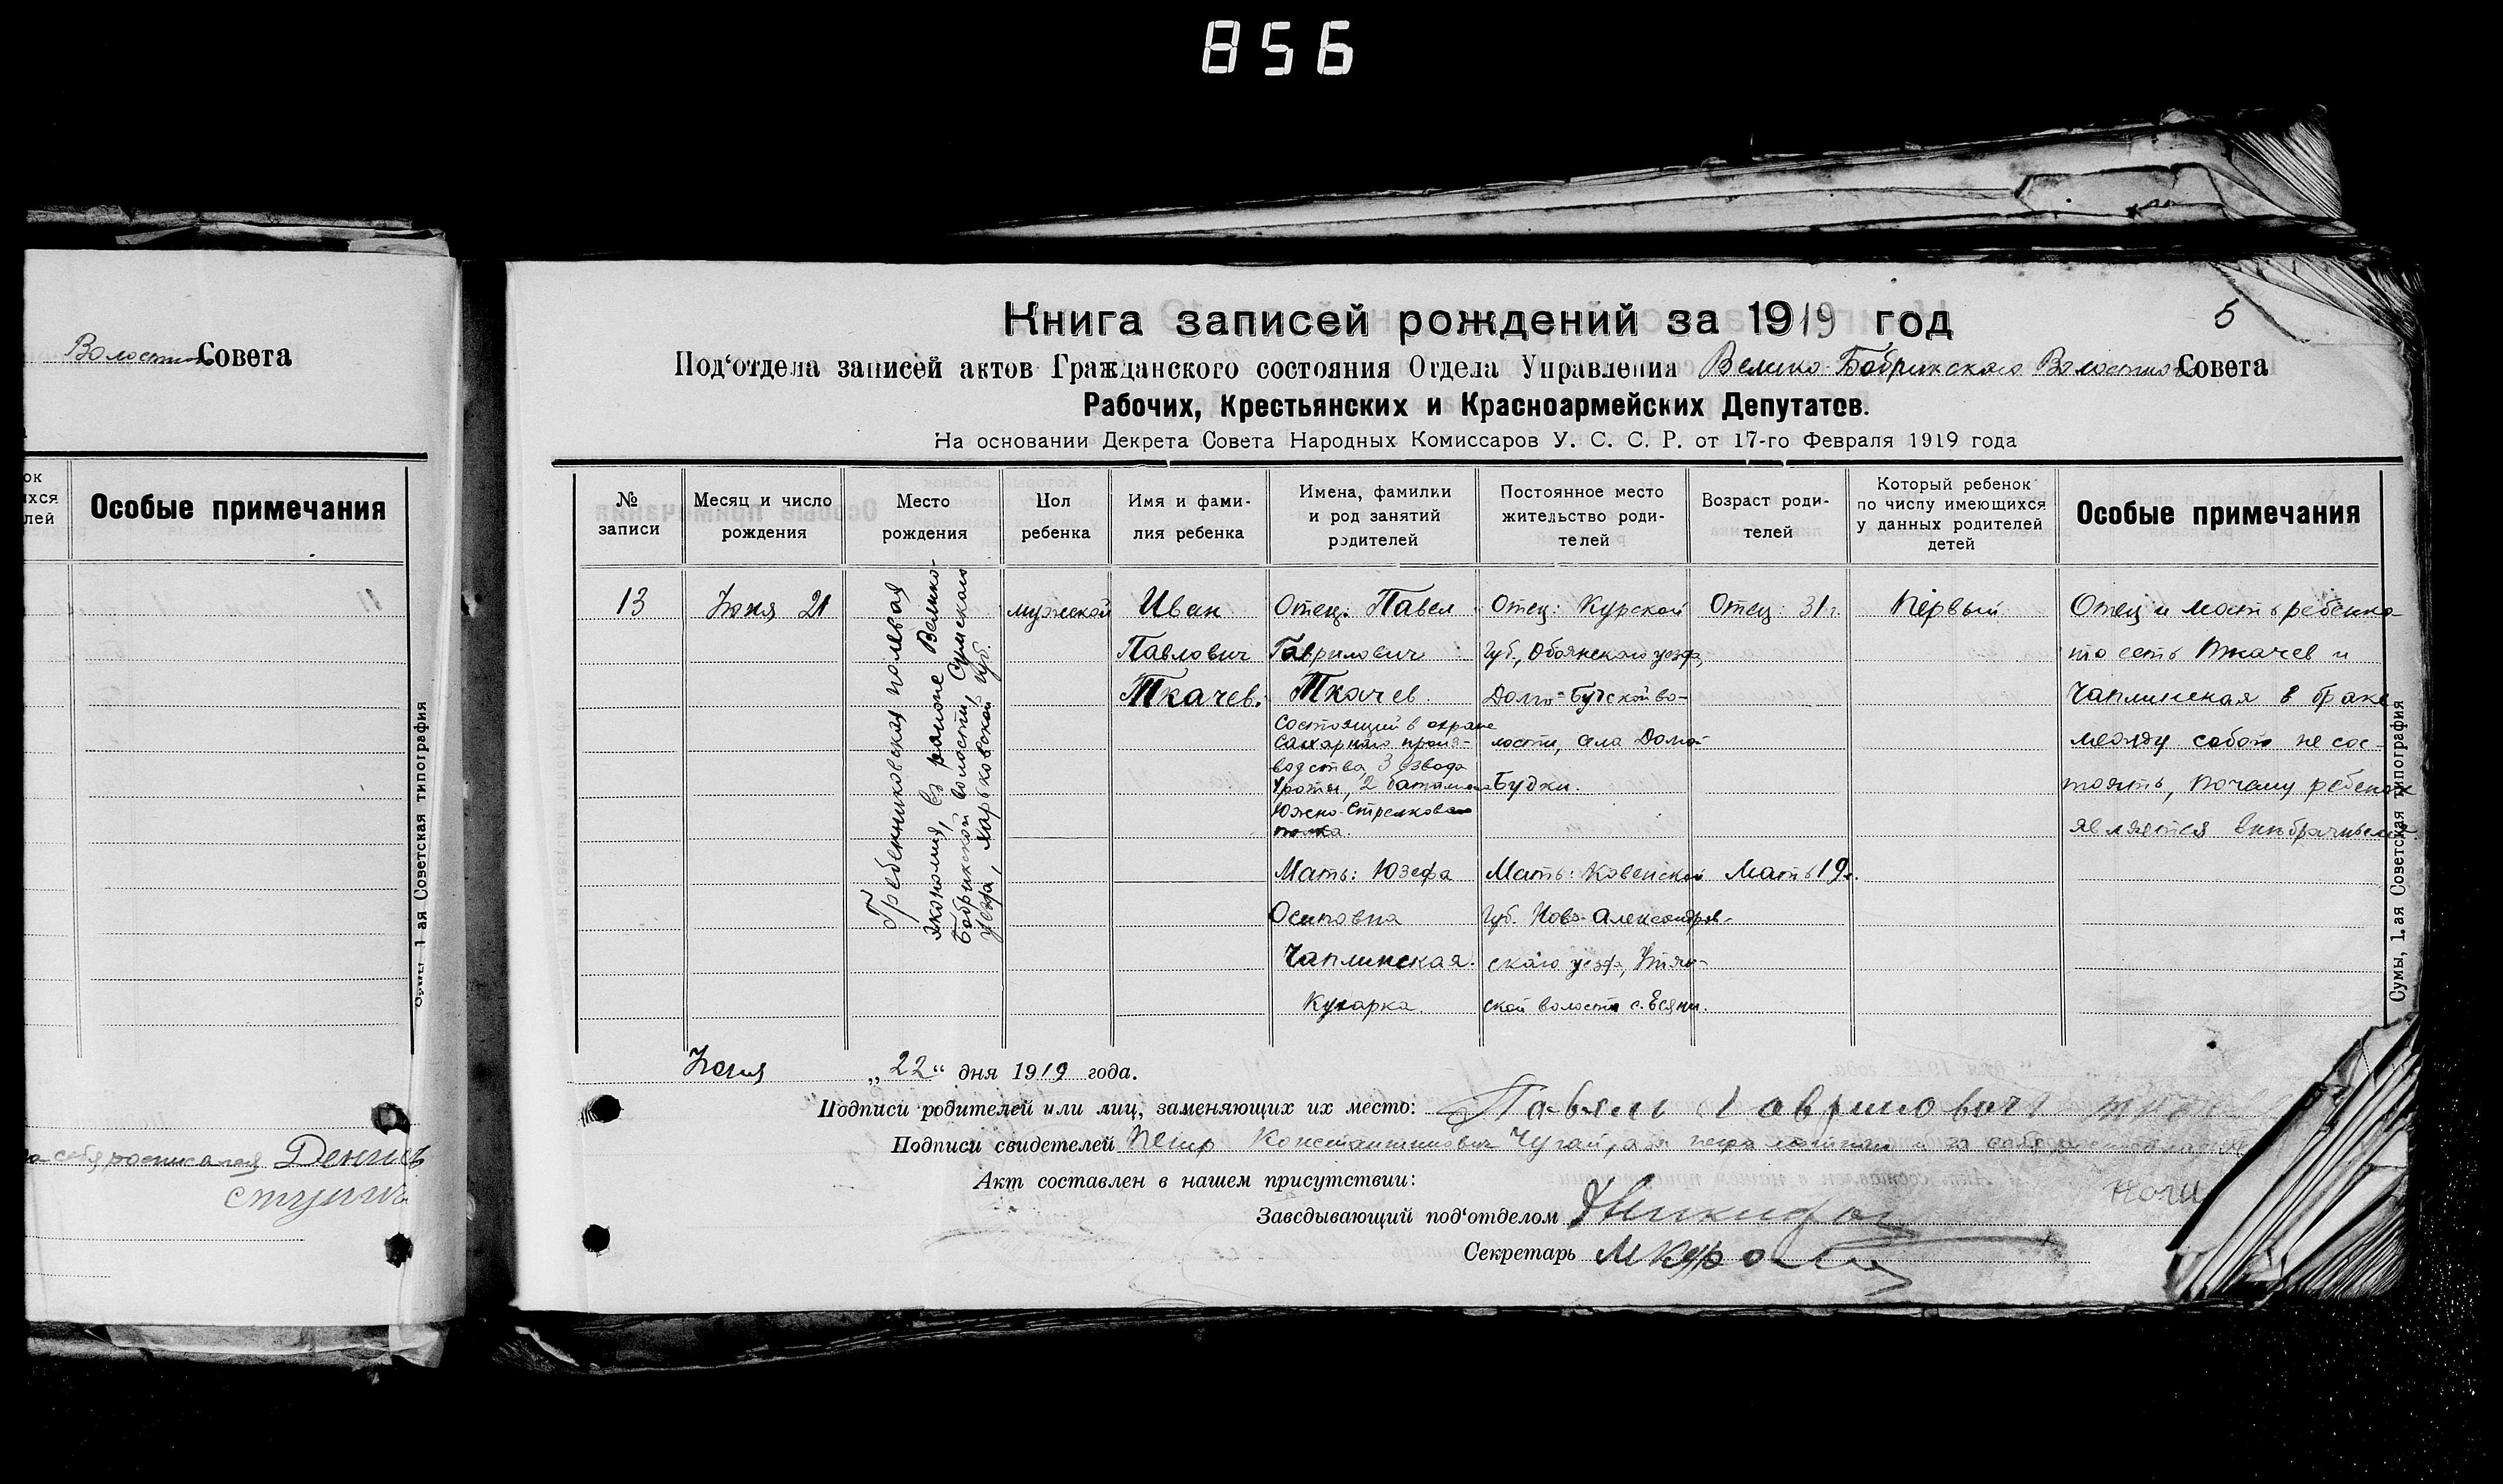 856
Волостного Совета
Особые примечания
за себя расписался Денис
ступин
1-ая Советская типография
5
Книга записей рождений за 1919 год
Под‘отдела записей актов Гражданского состояния Отдела Управления Велико-Бобрикского Волостного Совета
Рабочих, Крестьянских и Красноармейских Депутатов.
На основании Декрета Совета Народных Комиссаров У. С. С. Р. от 17-го Февраля 1919 года
№ записи
Месяц и число рождения
Место рождения
Пол ребенка
Имя и фамилия ребенка
Имена, фамилии и род занятий родителей
Постоянное место жительство родителей
Возраст родителей
Который ребенок по числу имеющихся у данных родителей детей
Особые примечания
13
Июня 21
Гребенниковская полевая
экономия, в районе Велико-
Бобрикской волости, Сумского
уезда, Харьковской губ.
мужской
Иван
Павлович
Ткачев.
Отец: Павел
Гаврилович
Ткачев.
Состоящий в охране
Сахарного произ-
водства 3 взвода
роты, 2 баталиона
Южно-Стрелкового
полка.
Мать: Юзефа
Осиповна
Чаплинская.
Кухарка.
Отец: Курской
Губ., Обоянского уезда,
Долго-Будской во-
лости, села Долгой
Будки.
Мать: Ковенской
Губ. Ново-Александров-
ского уезда,
ской волости с.
Отец: 31 г.
Мать 19 г.
Первый
Отец и мать ребенка
то есть Ткачев и
Чаплинская в браке
между собою не сос-
тоять, почему ребенок
является внебрачным.
Сумы, 1-ая Советская типография
Июня „22“ дня 1919 года.
Подписи родителей или лиц, заменяющих их место: Павел Гаврилович
Подписи свидетелей Петр Константинович Чугай, а за себя расписался
Акт составлен в нашем присутствии:
Заведывающий под‘отделом
Секретарь